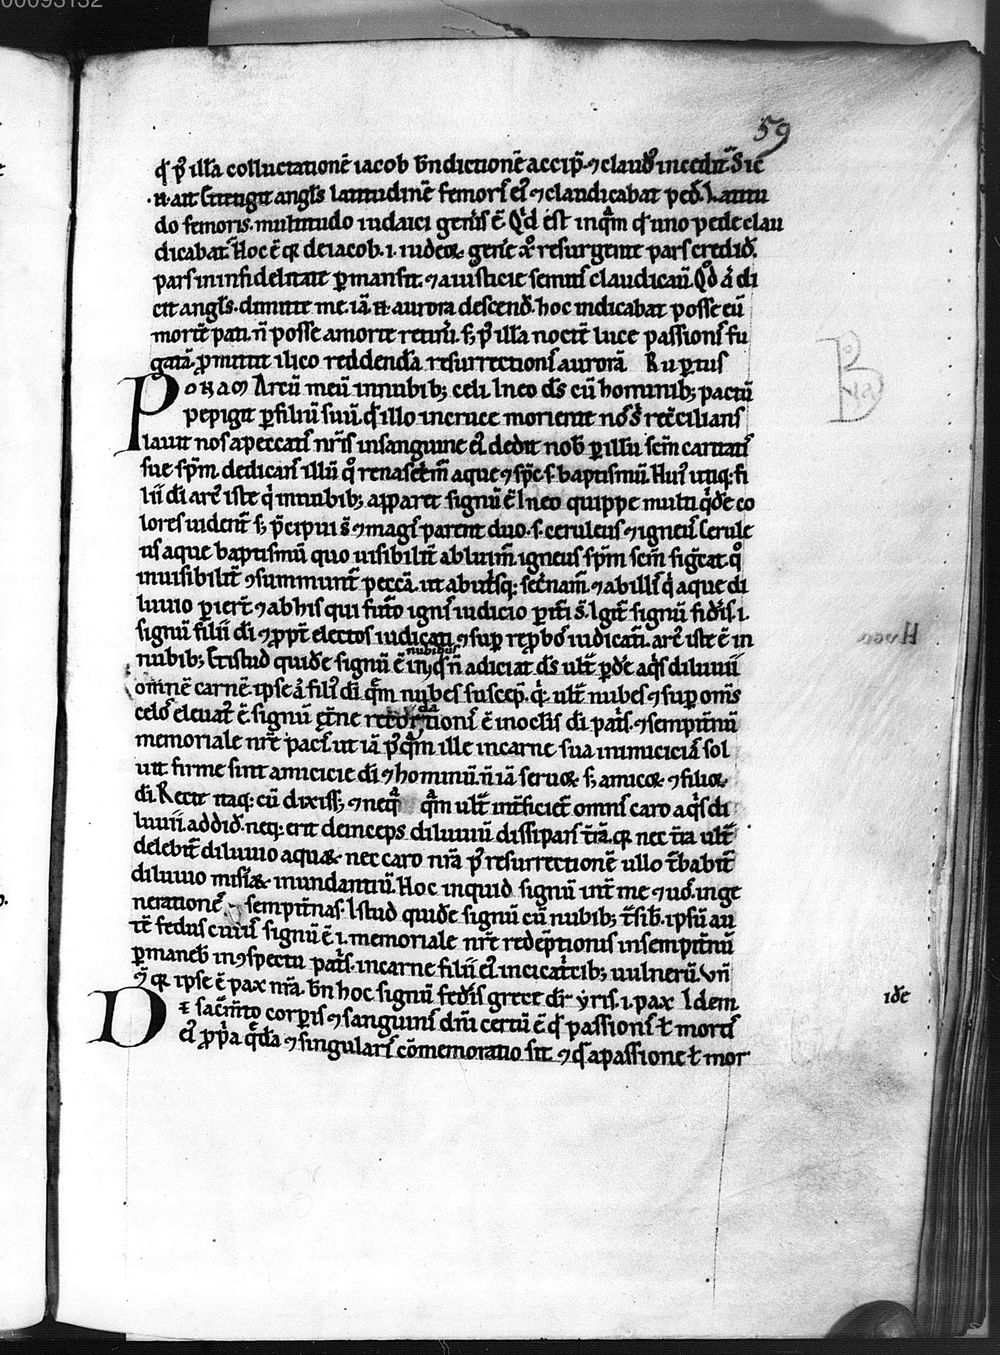 00093132
59
q̄ p̾ illā colluctationē iacob b̄ndictionē accip̄. ⁊ claud᷒ incedit. Sic
n̄. ait. Cōtigit angl̄s latitudinē femoris ei᷒ ⁊ claudicabat ped̄. Latitu
do femoris. multitudo iudaici gen̄is ē. Qͥd est inq̄m q̄ uno pede clau
dicabat. Hoc ē qꝫ de iacob .i. iudeoꝝ gente xp̄o resurgente pars credid̄.
pars in infidelitate ꝑmansit. ⁊ a iusticie semitis claudicauit. Qd̄ aū di
cit angl̄s. dimitte me. iā n̄. aurora descend̄. hoc indicabat posse eū
mortē pati. n̄ posse a morte retin̄i. sꝫ p̾ illā noctē luce passionis fu
gatā. ꝓmittit ilico reddendā resurrectionis aurorā Rup̄tus
PONAM Arcū meū in nubibꝫ celi. In eo d̄s cū hominibꝫ pactū
pepigit ꝑ filiū suū. q̄ illo in cruce moriente nos s̄ recōcilians
lauit nos a peccatis nr̄is in sanguine ei᷒. dedit nob̄ ꝑ illū sc̄m caritatis
sue sp̄m. dedicans illū qͦ renascim̄ aque ⁊ sp̄c .s. baptismū. Hui᷒ utiqꝫ fi
lii di arc᷒ iste qͥ in nubibꝫ apparet signū ē. In eo quippe multi qͥdē co
lores uident̄ sꝫ p̄cipui s̄ ⁊ magis parent duo .s. ceruleus ⁊ igneus. Cerule
us aque baptismū quo uisibilit̄ abluim̄. igneus sp̄m sc̄m sig̅cat. qͦ
inuisibilit̄ ⁊summunt̄ peccā.
luuio ꝑiert̄ ⁊ ab his qui futo ignis iudicio ꝑiti s̄. Igit̄ signū fid̄is .i.
signū filii di ⁊ ꝓpt̄ electos iudicati ⁊ sup̄ rep̄bos iudicat̄i. arc᷒ iste ē in
nubibꝫ. Et istud quidē signū ē in nubibus q̄ n̄ adiciat d̄s ult̄ ꝑdē aq̄s diluuii
omnē carnē. ipse aū fili᷒ di q̄m nubes suscep̄. qͥ ult̄ nubes ⁊ sup̄ om̄s
celos eleuat᷒ ē. signū et̄ne recordationis ē in oclis di patͥs. ⁊ sempit̄nū
memoriale nr̄e pacis. ut iā p̾q̄m ille in carne sua inimicicias sol
uit firme sint amicicie di ⁊ hominū. n̄ iā seruoꝝ sꝫ amicoꝝ ⁊ filioꝝ
di. Recte itaqꝫ cū dixissꝫ ⁊ neq̄ q̄m ult̄ int̄ficiet̄ omnis caro aq̄s di
luuii. addid̄. neqꝫ erit deinceps diluuiū dissipans t̄rā. qꝫ nec t̄rā ult̄
delebit̄ diluuio aquaꝝ nec caro nr̄a p̾ resurrectionē ullo t̄babit̄
diluuio miseriaꝝ inundantiū. Hoc inquid signū int̄ me ⁊ uos. in ge
nerationes sempit̄nas. Istud quidē signū cū nubibꝫ t̄sib̄. ipsū au
tē fedus cuius signū ē .i. memoriale nr̄e redēptionis in sempit̄nū
ꝑmaneb̄ in ⁊spectu patͥs. in carne filii ei᷒ in cicatͥcibꝫ uulnerū. Vn̄
⁊ qꝫ ipse ē pax nr̄a. b̄n hoc signū fed̄is grece dr̄ yris .i. pax. Idem
DE sacͣm̄to corꝑis ⁊ sanguinis dn̄i certū ē q̄ passionis ł mortis
ei᷒ ꝓp̄a q̄dā ⁊ singularis cōmemoratio sit. ⁊ q̄ a passione ł mor
idē